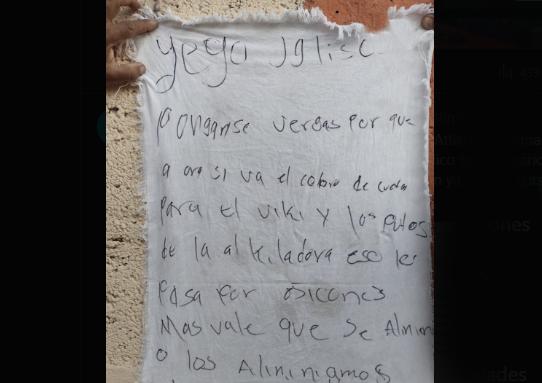 yego Jalisc
Ponganse vergas por que
a ora si va el cobro de cuota
para el viki y los putos
de la alkiladora eso les
Pasa por osicones
Mas vale que se Alinin
o los Aliniamos